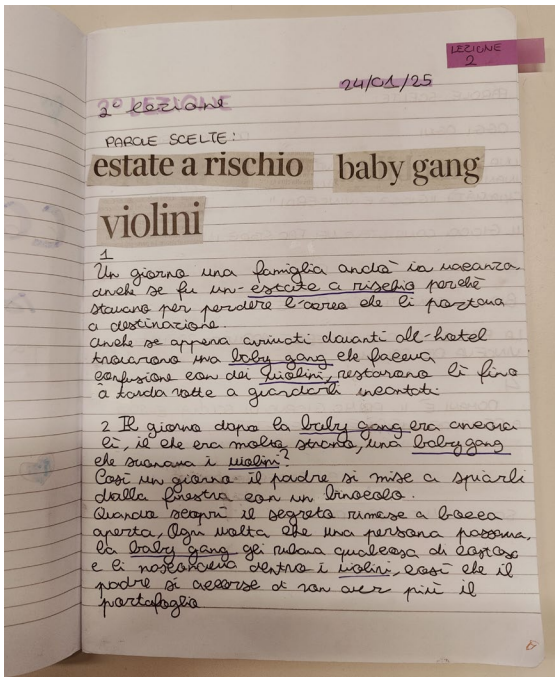 LEZIONE
2
24/01/25
2° LEZIONE
2° lezione
PAROLE SCELTE:
estate a rischio baby gang
violini
1
Un giorno una famiglia andò in vacanza,
anche se fu un'estate a rischio perché
stavano per perdere l'aereo che li portava
a destinazione.
Anche se appena arrivati davanti all'hotel
trovarono una baby gang che faceva
confusione con dei violini, restarono lì fino
a tarda notte a guardarli incantati
2 Il giorno dopo la baby gang era ancora
lì, il che era molto strano, una baby gang
che suonava i violini?
Così un giorno il padre si mise a spiarli
dalla finestra con un binocolo.
Quando scoprì il segreto rimase a bocca
aperta, Ogni volta che una persona passava,
la baby gang gli rubava qualcosa di costoso
e li nascondeva dentro i violini, così che il
padre si accorse di non aver più il
portafoglio